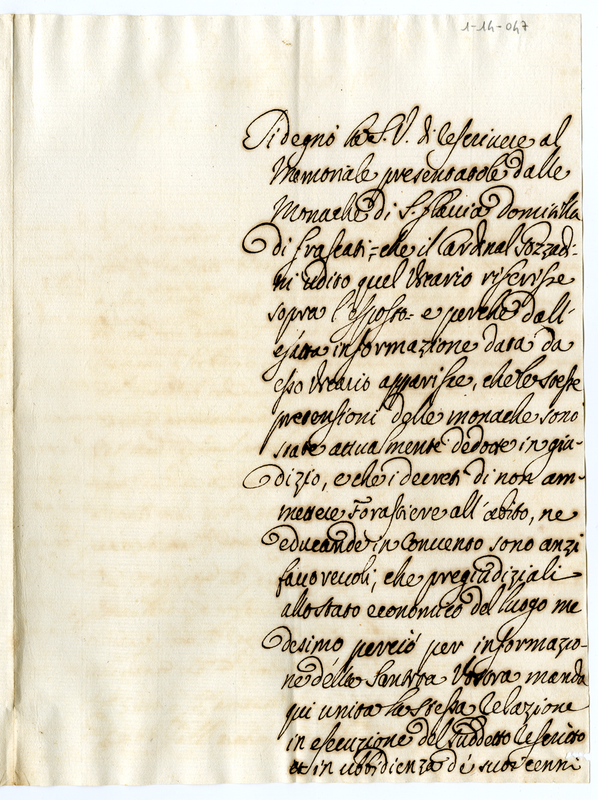 1-14-047
Si degnò la S. V. di rescrivere al
Memoriale presentatole dalle
Monache di S. Flavia Domitilla
di Frascati = che il Cardinal Pozzadi-
ni udito quel Vicario riferisse
sopra l'esposto = e perche dall'
esatta informazione data da
esso Vicario apparisse, che le stesse
pretensioni delle monache sono
state attualmente dedotte in giu-
dizio, e che i decreti di non am-
mettere Forastiere all'abito, ne
educande in Convento sono anzi
favorevoli, che pregiudiziali
allo stato economico del luogo me
desimo perciò per informazio-
ne della Santità Vostra manda
qui unita la stessa relazione
in esecuzione del suddetto rescritto
et in ubbidienza de suoi cenni